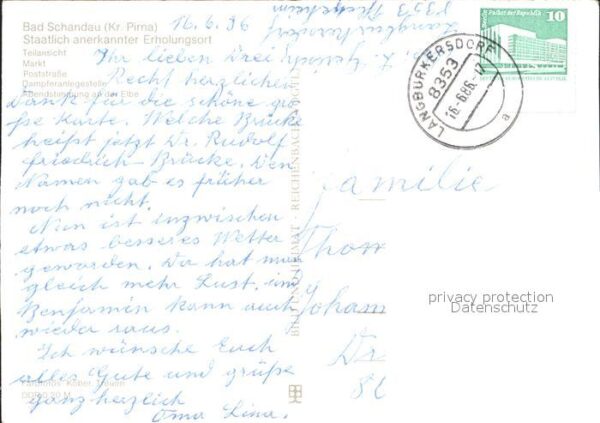 Bad Schandau (Kr. Pirna)
Staatlich anerkannter Erholungsort
Teilansicht
Markt
Poststraße
Dampferanlegestelle
Abendstimmung an der Elbe
16.6.86
8353
Langburkersdorf
Ihr lieben Drei
Recht herzlichen
Dank für die schöne gro
ße Karte. Welche Brücke
heißt jetzt Dr. Rudolf
Friedrich-Brücke. Den
Namen gab es früher
noch nicht.
Nun ist inzwischen
etwas besseres Wetter
geworden. Da hat man
gleich mehr Lust. im
Benjamin kann auch
wieder raus.
Ich wünsche Euch
alles Gute und grüße
ganz herzlich
Oma Lina.
BILD UND HEIMAT · REICHENBACH (VOGTL)
LANGBURKERSDORF
8353
16.-6.86.-17
a
Palast der Republik
10
Familie
Thom
Joham
Dr
80
privacy protection
Datenschutz